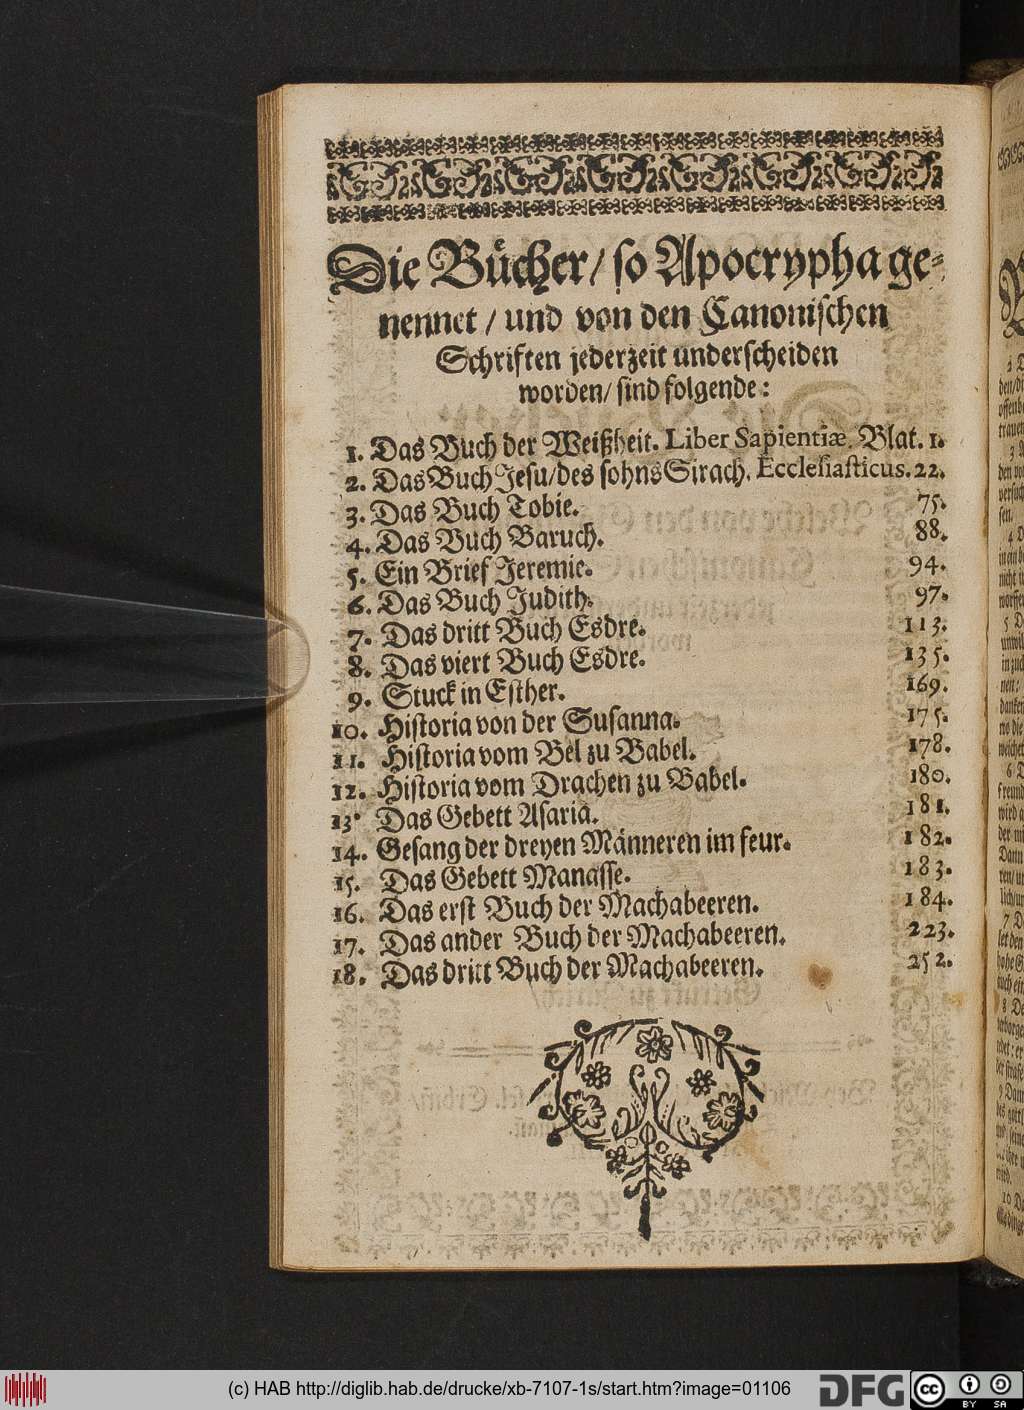 Die Bücher/ so Apocrypha ge-
nennet / und von den Canonischen
Schriften jederzeit underscheiden
worden/ sind folgende:
1. Das Buch der Weißheit. Liber Sapientiæ. Blat. 1.
2. Das Buch Jesu/des sohns Sirach. Ecclesiasticus. 22.
3. Das Buch Tobie. 75.
4. Das Buch Baruch. 88.
5. Ein Brief Jeremie. 94.
6. Das Buch Judith. 97.
7. Das dritt Buch Esdre. 113.
8. Das viert Buch Esdre. 135.
9. Stuck in Esther. 169.
10. Historia von der Susanna. 175.
11. Historia vom Bel zu Babel. 178.
12. Historia vom Drachen zu Babel. 180.
13. Das Gebett Asariä. 181.
14. Gesang der dreyen Männeren im feur. 182.
15. Das Gebett Manasse. 183.
16. Das erst Buch der Machabeeren. 184.
17. Das ander Buch der Machabeeren. 223.
18. Das dritt Buch der Machabeeren. 252.
(c) HAB http://diglib.hab.de/drucke/xb-7107-1s/start.htm?image=01106
DFG
cc BY SA